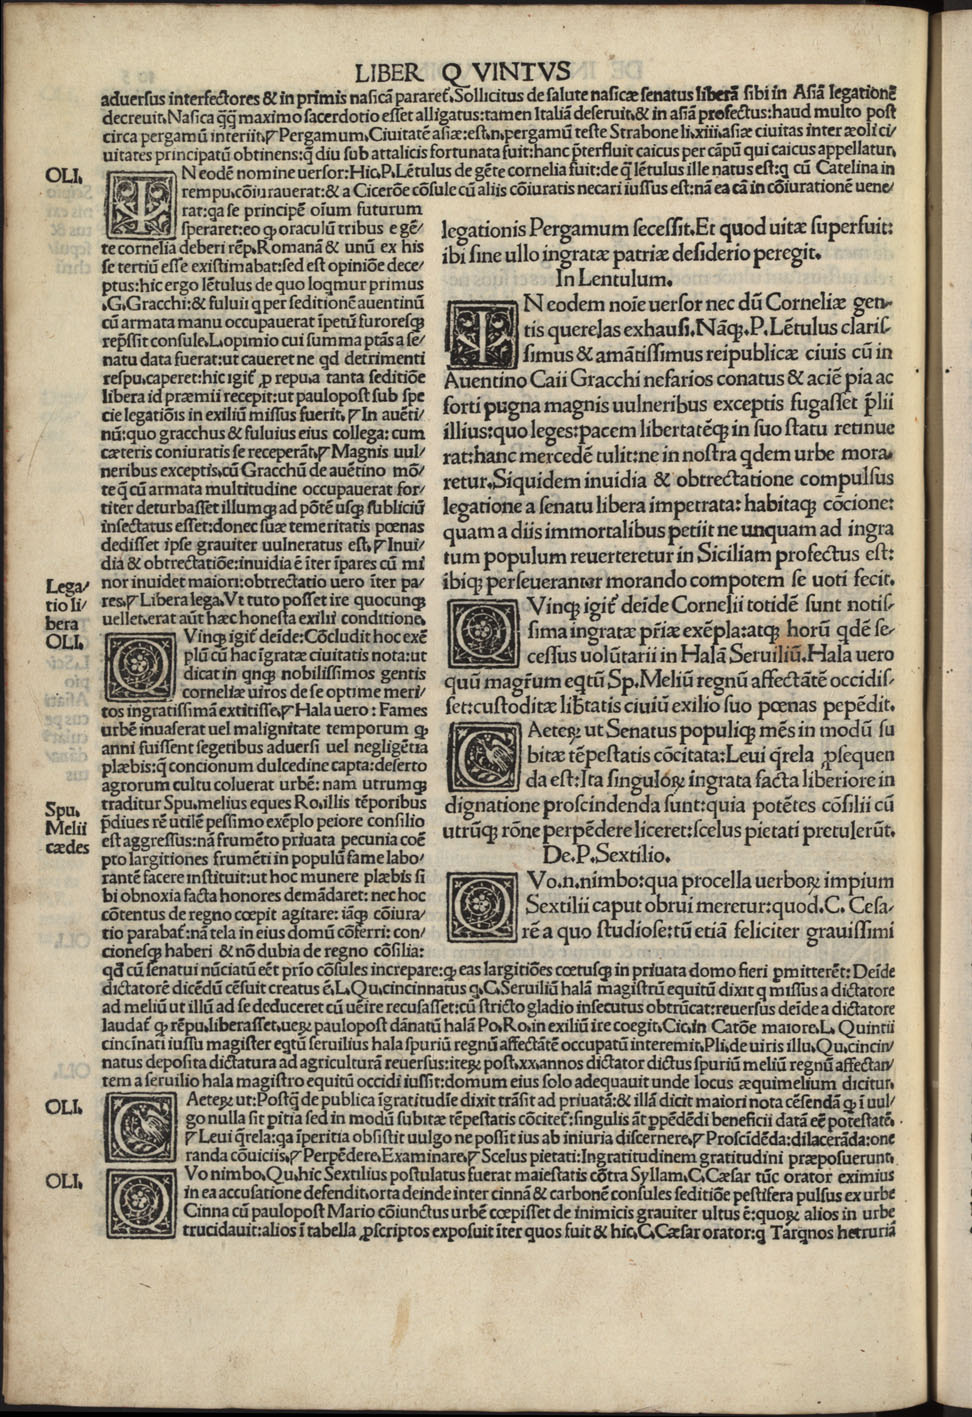 LIBER Q VINTVS
aduersus interfectores & in primis nasicā pararet̄. Sollicitus de salute nasicæ senatus liberā sibi in Asiā legationē
decreuit. Nasica q̄q̄ maximo sacerdotio esset alligatus: tamen Italiā deseruit. & in asiā profectus: haud multo post
circa pergamū interiit. ⁋ Pergamum. Ciuitatē asiæ: est. n. pergamū teste Strabone li. xiii. asiæ ciuitas inter æoli ci/
uitates principatū obtinens: q̄ diu sub attalicis fortunata fuit: hanc p̄terfluit caicus per cāpū qui caicus appellatur.
OLI. IN eodē nomine uersor: Hic. P. Lētulus de gēte cornelia fuit: de q̄ lētulus ille natus est: q̄ cū Catelina in
rempu. cōiurauerat: & a Cicerōe cōsule cū aliis cōiuratis necari iussus est: nā ea cā in cōiurationē uene/
rat: qa se principē oīum futurum
speraret: eo ꝙ oraculū tribus e gē/
te cornelia deberi rēp. Romanā & unū ex his
se tertiū esse existimabat: sed est opiniōe dece/
ptus: hic ergo lētulus de quo loqmur primus
.G. Gracchi: & fuluii q per seditionē auentinū
cū armata manu occupauerat īpetū furoresꝙ
rep̄ssit consule. L. opimio cui summa ptās a se/
natu data fuerat: ut caueret ne qd detrimenti
respu. caperet: hic igit̄ ꝓ repu. a tanta seditiōe
libera id præmii recepit: ut paulopost sub spe
cie legatiōis in exiliū missus fuerit. ⁋ In auēti/
nū: quo gracchus & fuluius eius collega: cum
cæteris coniuratis se receperāt. ⁋ Magnis uul/
neribus exceptis. cū Gracchū de auētino mō/
te q̄ cū armata multitudine occupauerat for/
titer deturbasset illumꝙ ad pōtē usꝙ subliciū
insectatus esset: donec suæ temeritatis pœnas
dedisset ipse grauiter uulneratus est. ⁋ Inui/
dia & obtrectatiōe: inuidia ē īter īpares cū mi
nor inuidet maiori: obtrectatio uero īter pa/
Lega/
tio li/
bera
res. ⁋ Libera lega. Vt tuto posset ire quocunꝙ
uellet. erat aūt hæc honesta exilii conditione.
OLI. QVinꝙ igit̄ deīde: Cōcludit hoc exē
plū cū hac īgratæ ciuitatis nota: ut
dicat in qnꝙ nobilissimos gentis
corneliæ uiros de se optime meri/
tos ingratissimā extitisse. ⁋ Hala uero: Fames
urbē inuaserat uel malignitate temporum ꝙ
anni fuissent segetibus aduersi uel negligētia
plæbis: q̄ concionum dulcedine capta: deserto
agrorum cultu coluerat urbē: nam utrumꝙ
Spu.
Melii
cædes
traditur Spu. melius eques Ro. illis tēporibus
p̄diues rē utilē pessimo exēplo peiore consilio
est aggressus: nā frumēto priuata pecunia coē
pto largitiones frumēti in populū fame labo/
rantē facere instituit: ut hoc munere plæbis si
bi obnoxia facta honores demādaret: nec hoc
cōtentus de regno cœpit agitare: iāꝙ cōiura/
tio parabat̄: nā tela in eius domū cōferri: con/
cionesꝙ haberi & nō dubia de regno cōsilia:
legationis Pergamum secessit. Et quod uitæ superfuit:
ibi sine ullo ingratæ patriæ desiderio peregit.
In Lentulum.
IN eodem noīe uersor nec dū Corneliæ gen/
tis querelas exhausi. Nāꝙ. P. Lētulus claris/
simus & amātissimus reipublicæ ciuis cū in
Auentino Caii Gracchi nefarios conatus & aciē pia ac
forti pugna magnis uulneribus exceptis fugasset p̄lii
illius: quo leges: pacem libertatēꝙ in suo statu retinue
rat: hanc mercedē tulit: ne in nostra qdem urbe mora/
retur. Siquidem inuidia & obtrectatione compulsus
legatione a senatu libera impetrata: habitaꝙ cōcione:
quam a diis immortalibus petiit ne unquam ad ingra
tum populum reuerteretur in Siciliam profectus est:
ibiꝙ perseueranter morando compotem se uoti fecit.
QVinꝙ igit̄ deīde Cornelii totidē sunt notis/
sima ingratæ pr̄iæ exēpla: atꝙ horū qdē se/
cessus uolūtarii in Halā Seruiliū. Hala uero
quū magr̄um eqtū Sp. Meliū regnū affectātē occidis/
set: custoditæ lib̄tatis ciuiū exilio suo pœnas pepēdit.
CAeteꝝ ut Senatus populiꝙ mēs in modū su
bitæ tēpestatis cōcitata: Leui q̄rela ꝓsequen
da est: Ita singuloꝝ ingrata facta liberiore in
dignatione proscindenda sunt: quia potētes cōsilii cū
utrūꝙ rōne perpēdere liceret: scelus pietati pretulerūt.
De. P. Sextilio.
QVo. n. nimbo: qua procella uerboꝝ impium
Sextilii caput obrui meretur: quod. C. Cesa/
rē a quo studiose: tū etiā feliciter grauissimi
qd cū senatui nūciatū eēt prīo cōsules increpare: ꝙ eas largitiōes cœtusꝙ in priuata domo fieri ꝑmitterēt: Deīde
dictatorē dicēdū cēsuit creatus ē. L. Qu. cincinnatus q. C. Seruiliū halā magistrū equitū dixit q missus a dictatore
ad meliū ut illū ad se deduceret cū uēire recusasset: cū stricto gladio insecutus obtrūcat: reuersus deīde a dictatore
laudat̄ ꝙ rēpu. liberasset. ueꝝ paulopost dānatū halā Po. Ro. in exiliū ire coegit. Cic. in Catōe maiore. L. Quintii
cincīnati iussu magister eqtū seruilius hala spuriū regnū affectātē occupatū interemit. Pli. de uiris illu. Qu. cincin/
natus deposita dictatura ad agriculturā reuersus: iteꝝ post. xx. annos dictator dictus spuriū meliū regnū affectan/
tem a seruilio hala magistro equitū occidi iussit: domum eius solo adequauit unde locus æquimelium dicitur.
OLI. CAeteꝝ ut: Postq̄ de publica īgratitudīe dixit trāsit ad priuatā: & illā dicit maiori nota cēsendā ꝙ ī uul/
go nulla sit ꝑitia sed in modū subitæ tēpestatis cōcitet̄: singulis aūt ꝑpēdēdi beneficii datā eē potestatē.
⁋ Leui q̄rela: qa īperitia obsistit uulgo ne possit ius ab iniuria discernere. ⁋ Proscīdēda: dilacerāda: one
randa cōuiciis. ⁋ Perpēdere. Examinare. ⁋ Scelus pietati: Ingratitudinem gratitudini præposuerunt.
OLI. QVo nimbo. Qu. hic Sextilius postulatus fuerat maiestatis cōtra Syllam. C. Cæsar tūc orator eximius
in ea accusatione defendit. orta deinde inter cinnā & carbonē consules seditiōe pestifera pulsus ex urbe
Cinna cū paulopost Mario cōiunctus urbē cœpisset de inimicis grauiter ultus ē: quoꝝ alios in urbe
trucidauit: alios ī tabella ꝓscriptos exposuit īter quos fuit & hic. C. Cæsar orator: q Tarqnos hetruriā